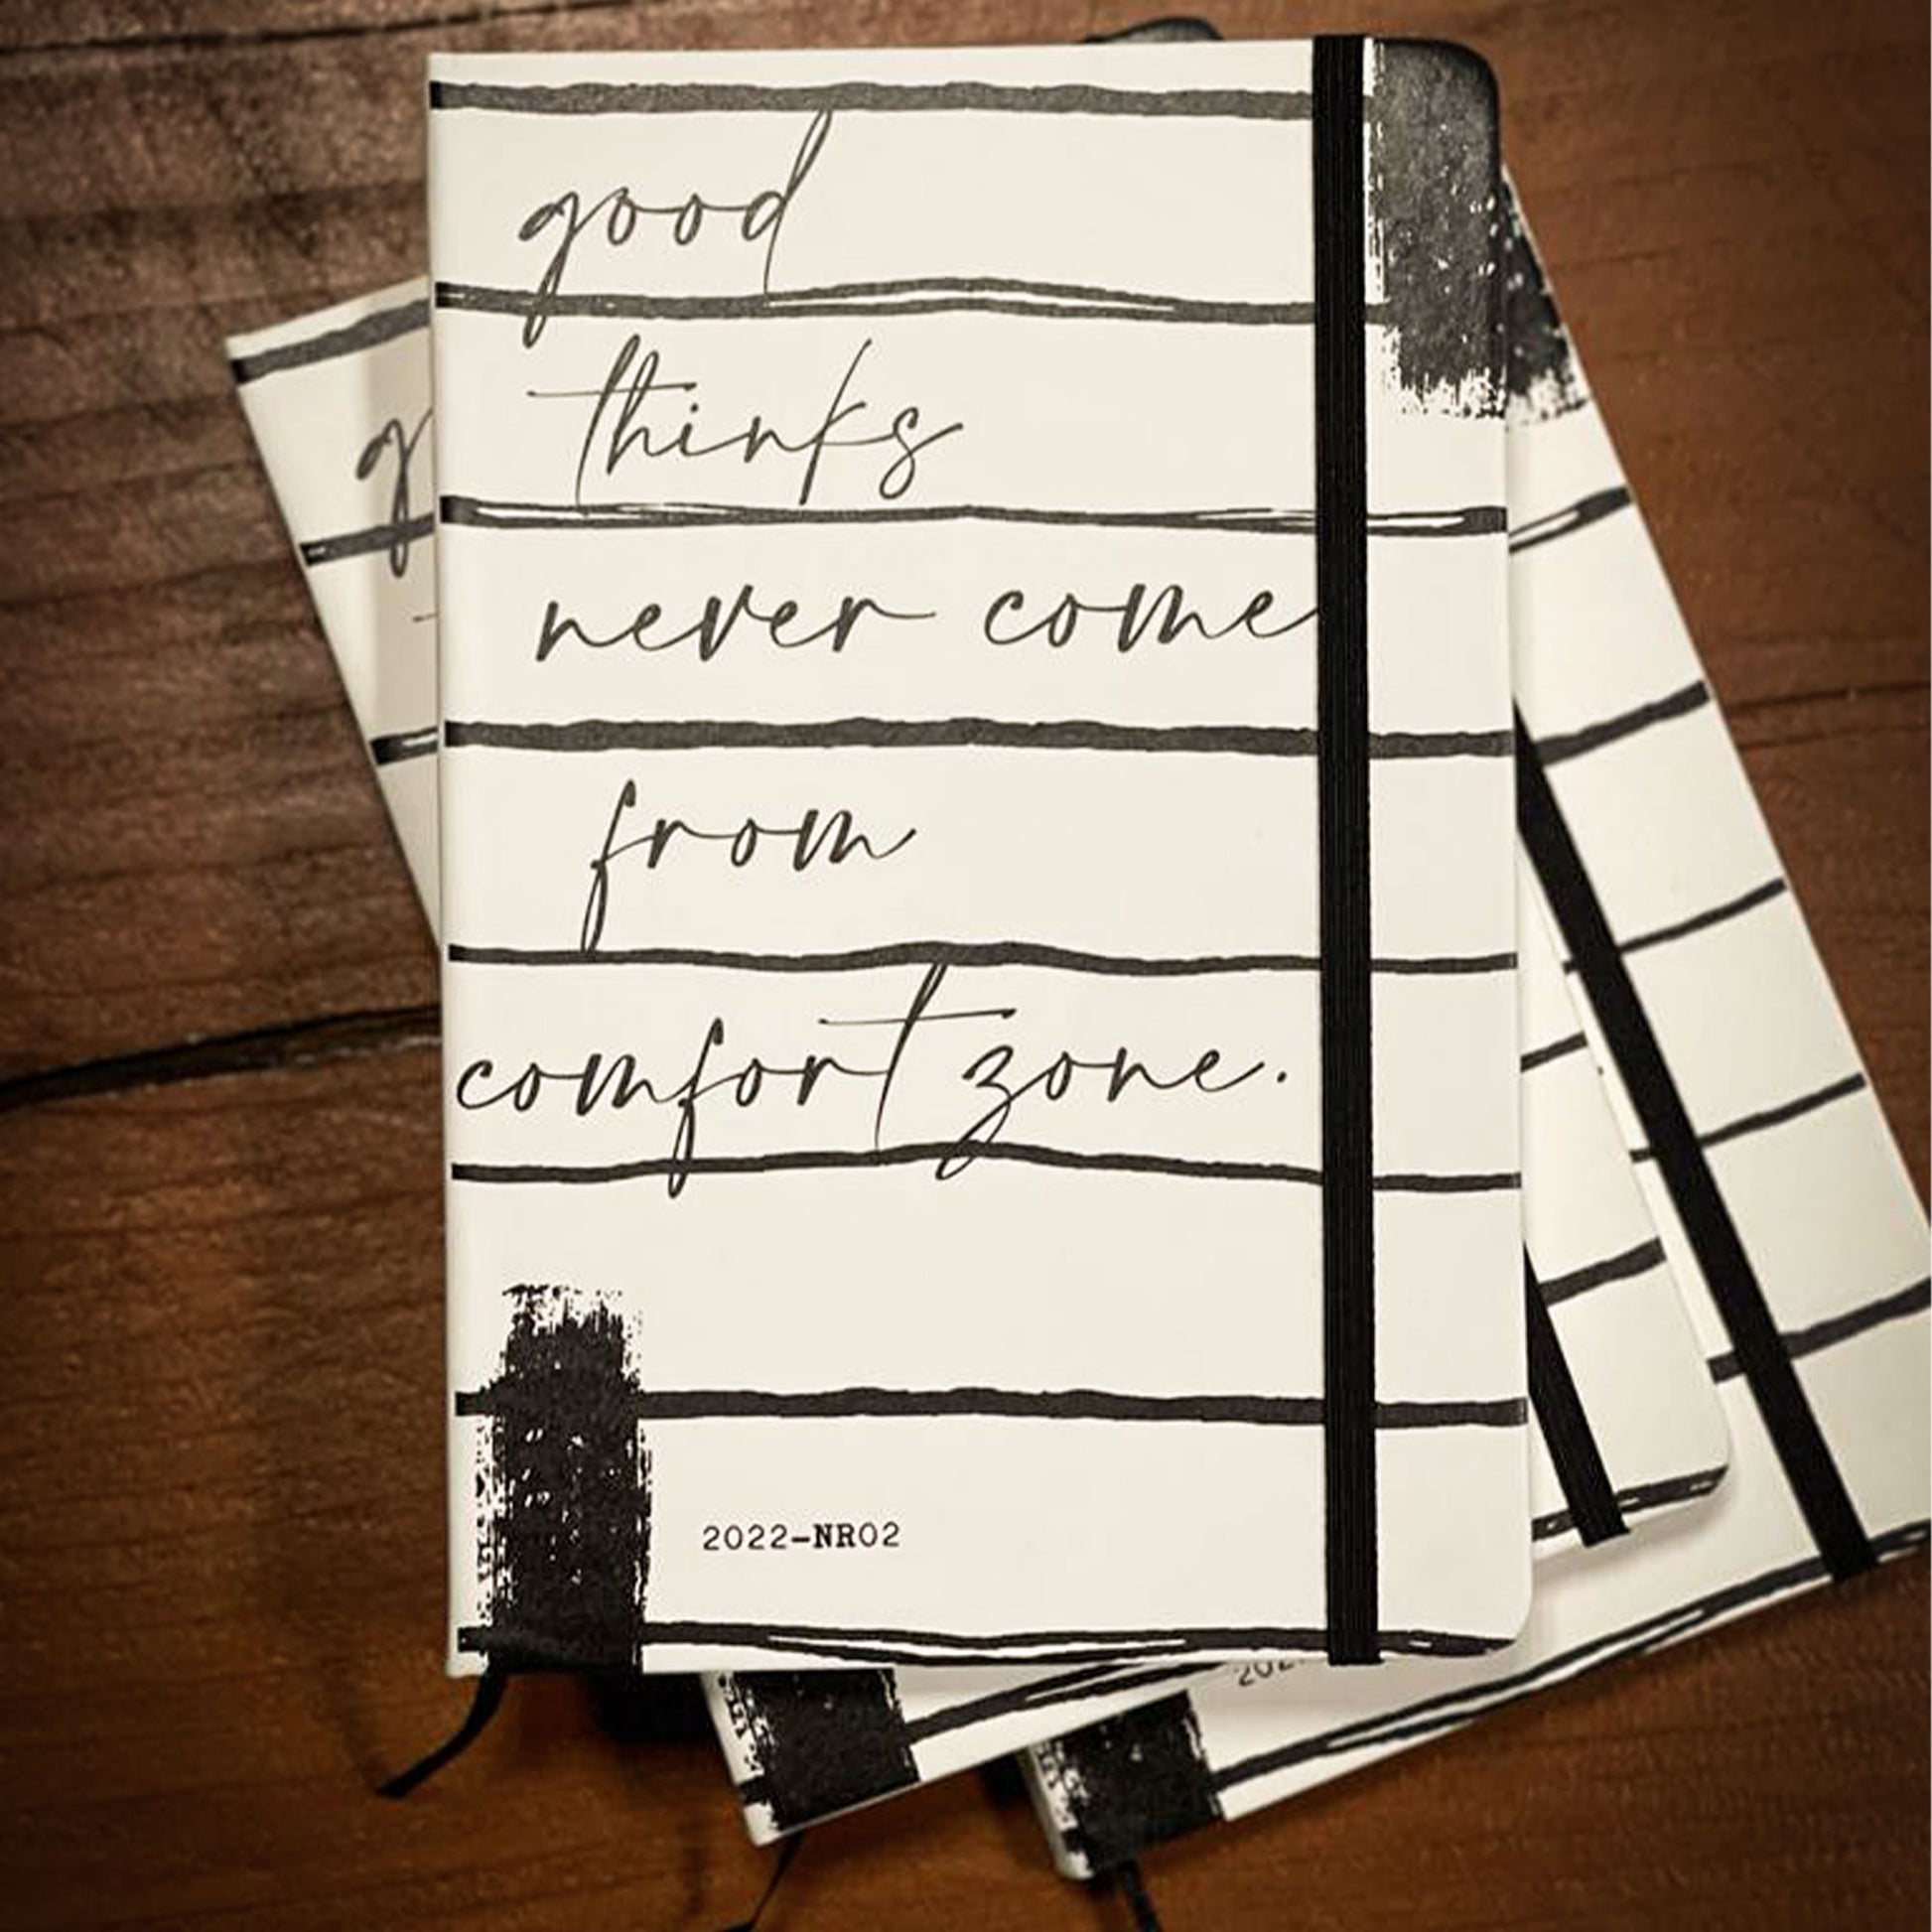 good
thinks
never come
from
comfort zone.
2022-NR02
g
202